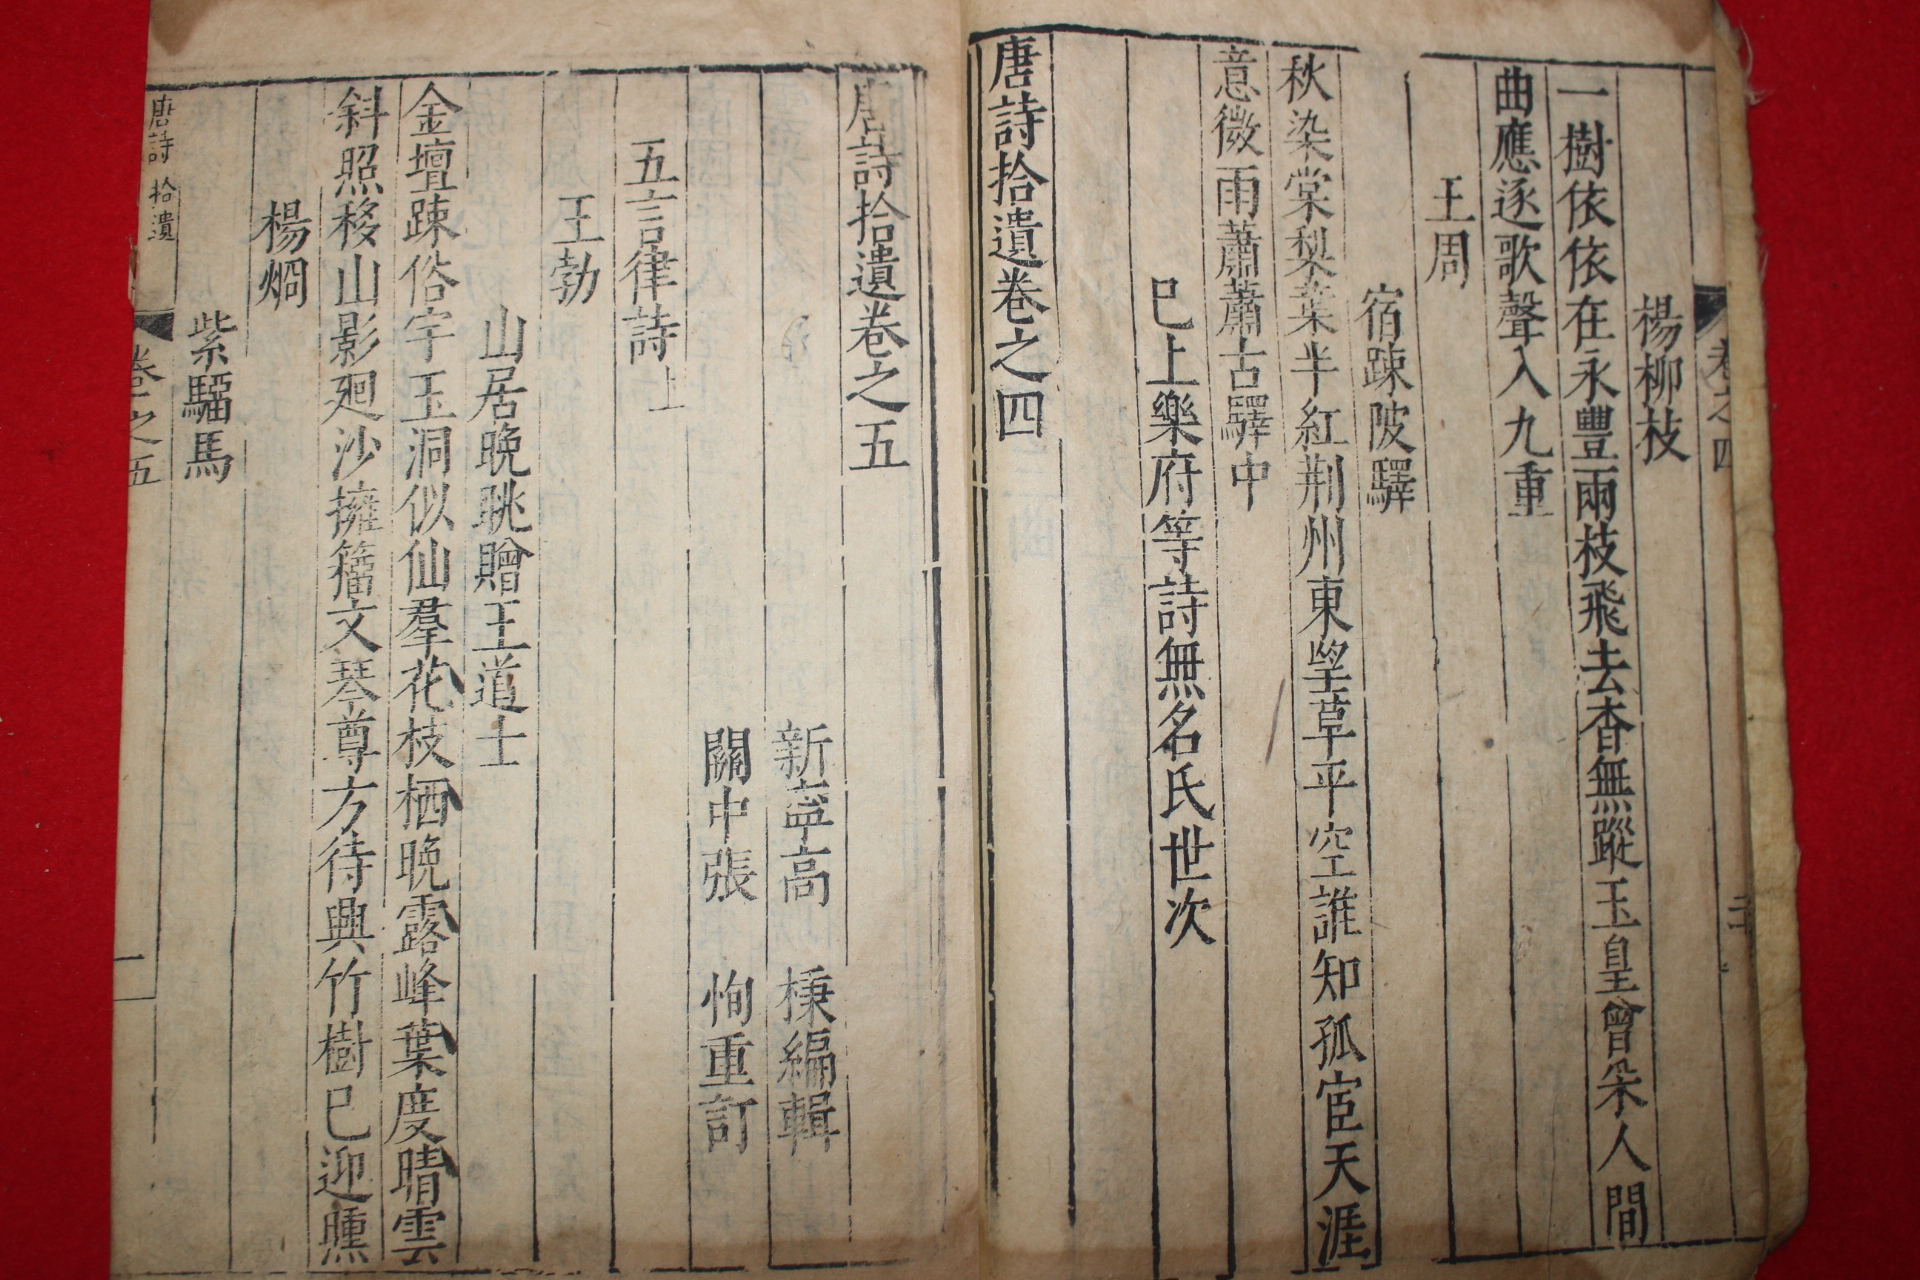 卷之四
楊柳枝
一樹依依在永豐兩枝飛去杳無蹤玉皇曾采人間
曲應逐歌聲入九重
王周
宿踈陂驛
秋染棠梨葉半紅荆州東望草平空誰知孤宦天涯
意微雨蕭蕭古驛中
已上樂府等詩無名氏世次
唐詩拾遺卷之四
唐詩拾遺卷之五
新寧高 棅編輯
關中張 恂重訂
五言律詩上
王勃
山居晚眺贈王道士
金壇踈俗宇玉洞似仙羣花枝栖晚露峰葉度晴雲
斜照移山影廻沙擁籀文琴尊方待興竹樹已迎曛
楊烱
紫騮馬
唐詩 拾遺
卷之五
一